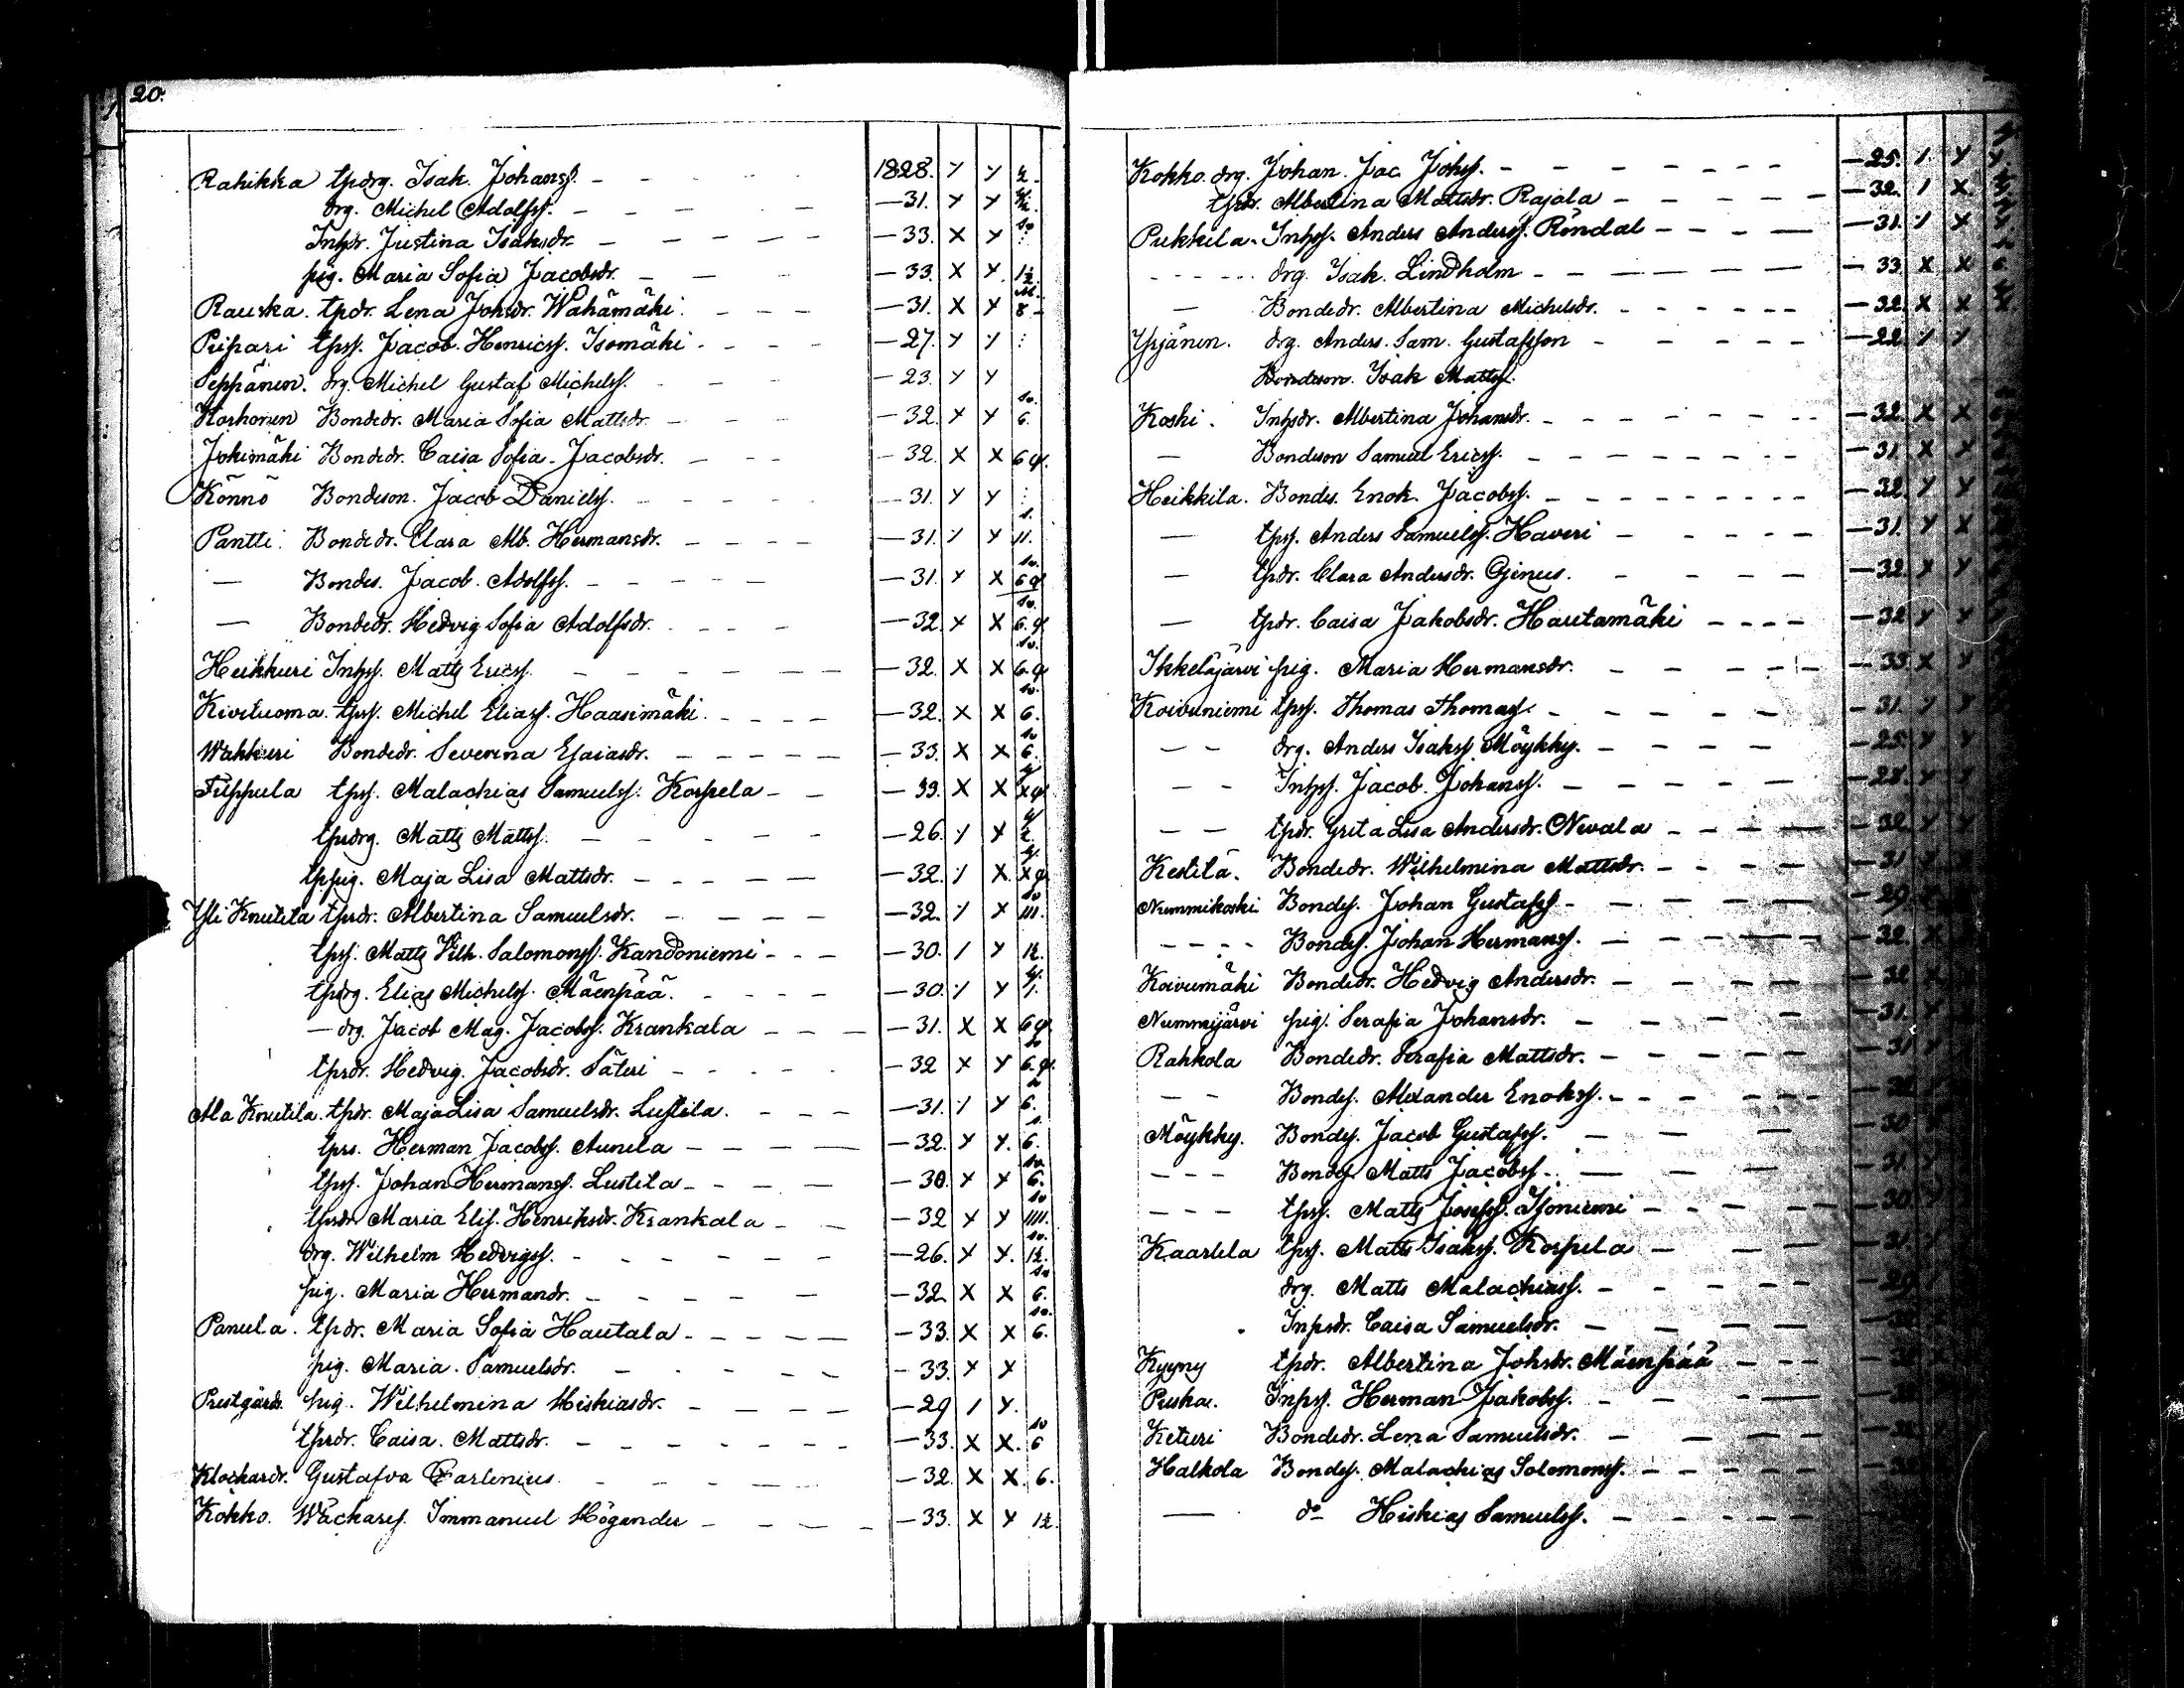 20.
Rahikka tpdrg. Isak. Johanss. 1828.
drg. Michel Adolfss. —31.
Inhsdr. Justina Isaksdr. —33.
pig. Maria Sofia Jacobsdr. —33. 1½
Rauska. tpdr. Lena Johsdr. Wähämäki —31. 8
Piipari tpss. Jacob. Henricss. Isomäki —27.
Seppänen. drg. Michel Gustaf Michelss. —23.
Korhonen Bondedr. Maria Sofia Mattsdr. —32. 6.
Jokimäki Bondedr. Caisa Sofia. Jacobsdr. —32. 6
Könnö Bondeson. Jacob Danielss. —31.
Pantti. Bondedr. Clara Alb. Hermansdr. —31. 11.
— Bondes. Jacob. Adolfss. —31. 6
— Bondedr. Hedvig Sofia Adolfsdr. —32. 6.
Heikkuri Inhss. Matts Ericss. —32. 6.
Kiviluoma. tpss. Michel Eliass. Haasimäki. —32. 6.
Wahkuri Bondedr. Severina Esaiasdr. —33. 6.
Filppula tpss. Malachias Samuelss. Korpela —33.
tpdrg. Matts Mattss. —26.
tppig. Maja Lisa Mattsdr. —32.
Yli Knuutila tpsdr. Albertina Samuelsdr. —32. III.
tpss. Matts Vilh. Salomonss. Kandoniemi —30. 12.
tpdrg. Elias Michelss. Mäenpää. —30. 1.
— drg. Jacob Mag. Jacobss. Krankala —31. 6
tpsdr. Hedvig. Jacobsdr. Säteri —32 6.
Ala Knuutila. tpdr. Maja Lisa Samuelsdr. Lustila. —31. 6.
tpss. Herman Jacobss. Aunela —32. 6.
tpss. Johan Hermanss. Lustila —30. 6.
tpsdr Maria Elis. Henriksdr. Krankala —32 IIII.
drg. Wilhelm Hedvigss. —26. 12.
pig. Maria Hermandr. —32. 6.
Panula. tpdr. Maria Sofia Hautala —33. 6.
pig. Maria. Samuelsdr. —33.
Prestgårds pig. Wilhelmina Hiskiasdr. —29
tpsdr. Caisa. Mattsdr. —33. 6
Klockardr. Gustafva Carlenius —32. 6.
Kokko. Immanuel Högander —33. 12.
Kokko. drg. Johan. Jac. Johss. —25.
tpdr. Albertina Mattsdr. Rajala —32.
Pukkila. Inhss. Anders Anderss. Röndal —31.
drg. Isak. Lindholm —33.
— Bondedr. Albertina Michelsdr. —32.
Yrjänen. drg. Anders. Sam. Gustafsson —22.
Bondeson. Isak Mattss.
Koski. Inhsdr. Albertina Johansdr. —32.
— Bondeson Samuel Ericss. —31.
Heikkila. Bondes. Enok. Jacobss. —32.
— tpss. Anders Samuelss. Haveri —31.
— tpdr. Clara Andersdr. Ojenus. —32.
— tpdr. Caisa Jakobsdr. Hautamäki —32
Ikkeläjärvi pig. Maria Hermansdr. —33.
Koivuniemi tpss. Thomas Thomass. —31.
— drg. Anders Isakss. Möykky. —25.
— Inhss. Jacob. Johanss. —28.
— tpdr. Greta Lisa Andersdr. Nevala —32
Kestilä. Bondedr. Wilhelmina Mattsdr. —31
Nummikoski Bondes. Johan Gustafss —29
Bondes. Johan Hermanss. —32.
Koivumäki Bondedr. Hedvig Andersdr. —32
Nummijärvi pig. Serafia Johansdr. —31.
Rahkola Bondedr. Serafia Mattsdr. —31
— Bondes. Alexander Enokss.
Möykky. Bondes. Jacob Gustafss. —30
Bondes. Matts Jacobss. —31
tpss. Matts Josefss. Isoniemi —30
Kaartila tpss. Matts Isakss. Korpela —31.
drg. Matts Malachiass. —29
Inhsdr. Caisa Samuelsdr.
Kyyny tpdr. Albertina Johsdr. Mäenpää
Puska. Inhss. Herman Jakobss.
Keturi Bondedr. Lena Samuelsdr.
Halkola Bondes. Malachias Solomonss.
— do Hiskias Samuelss.